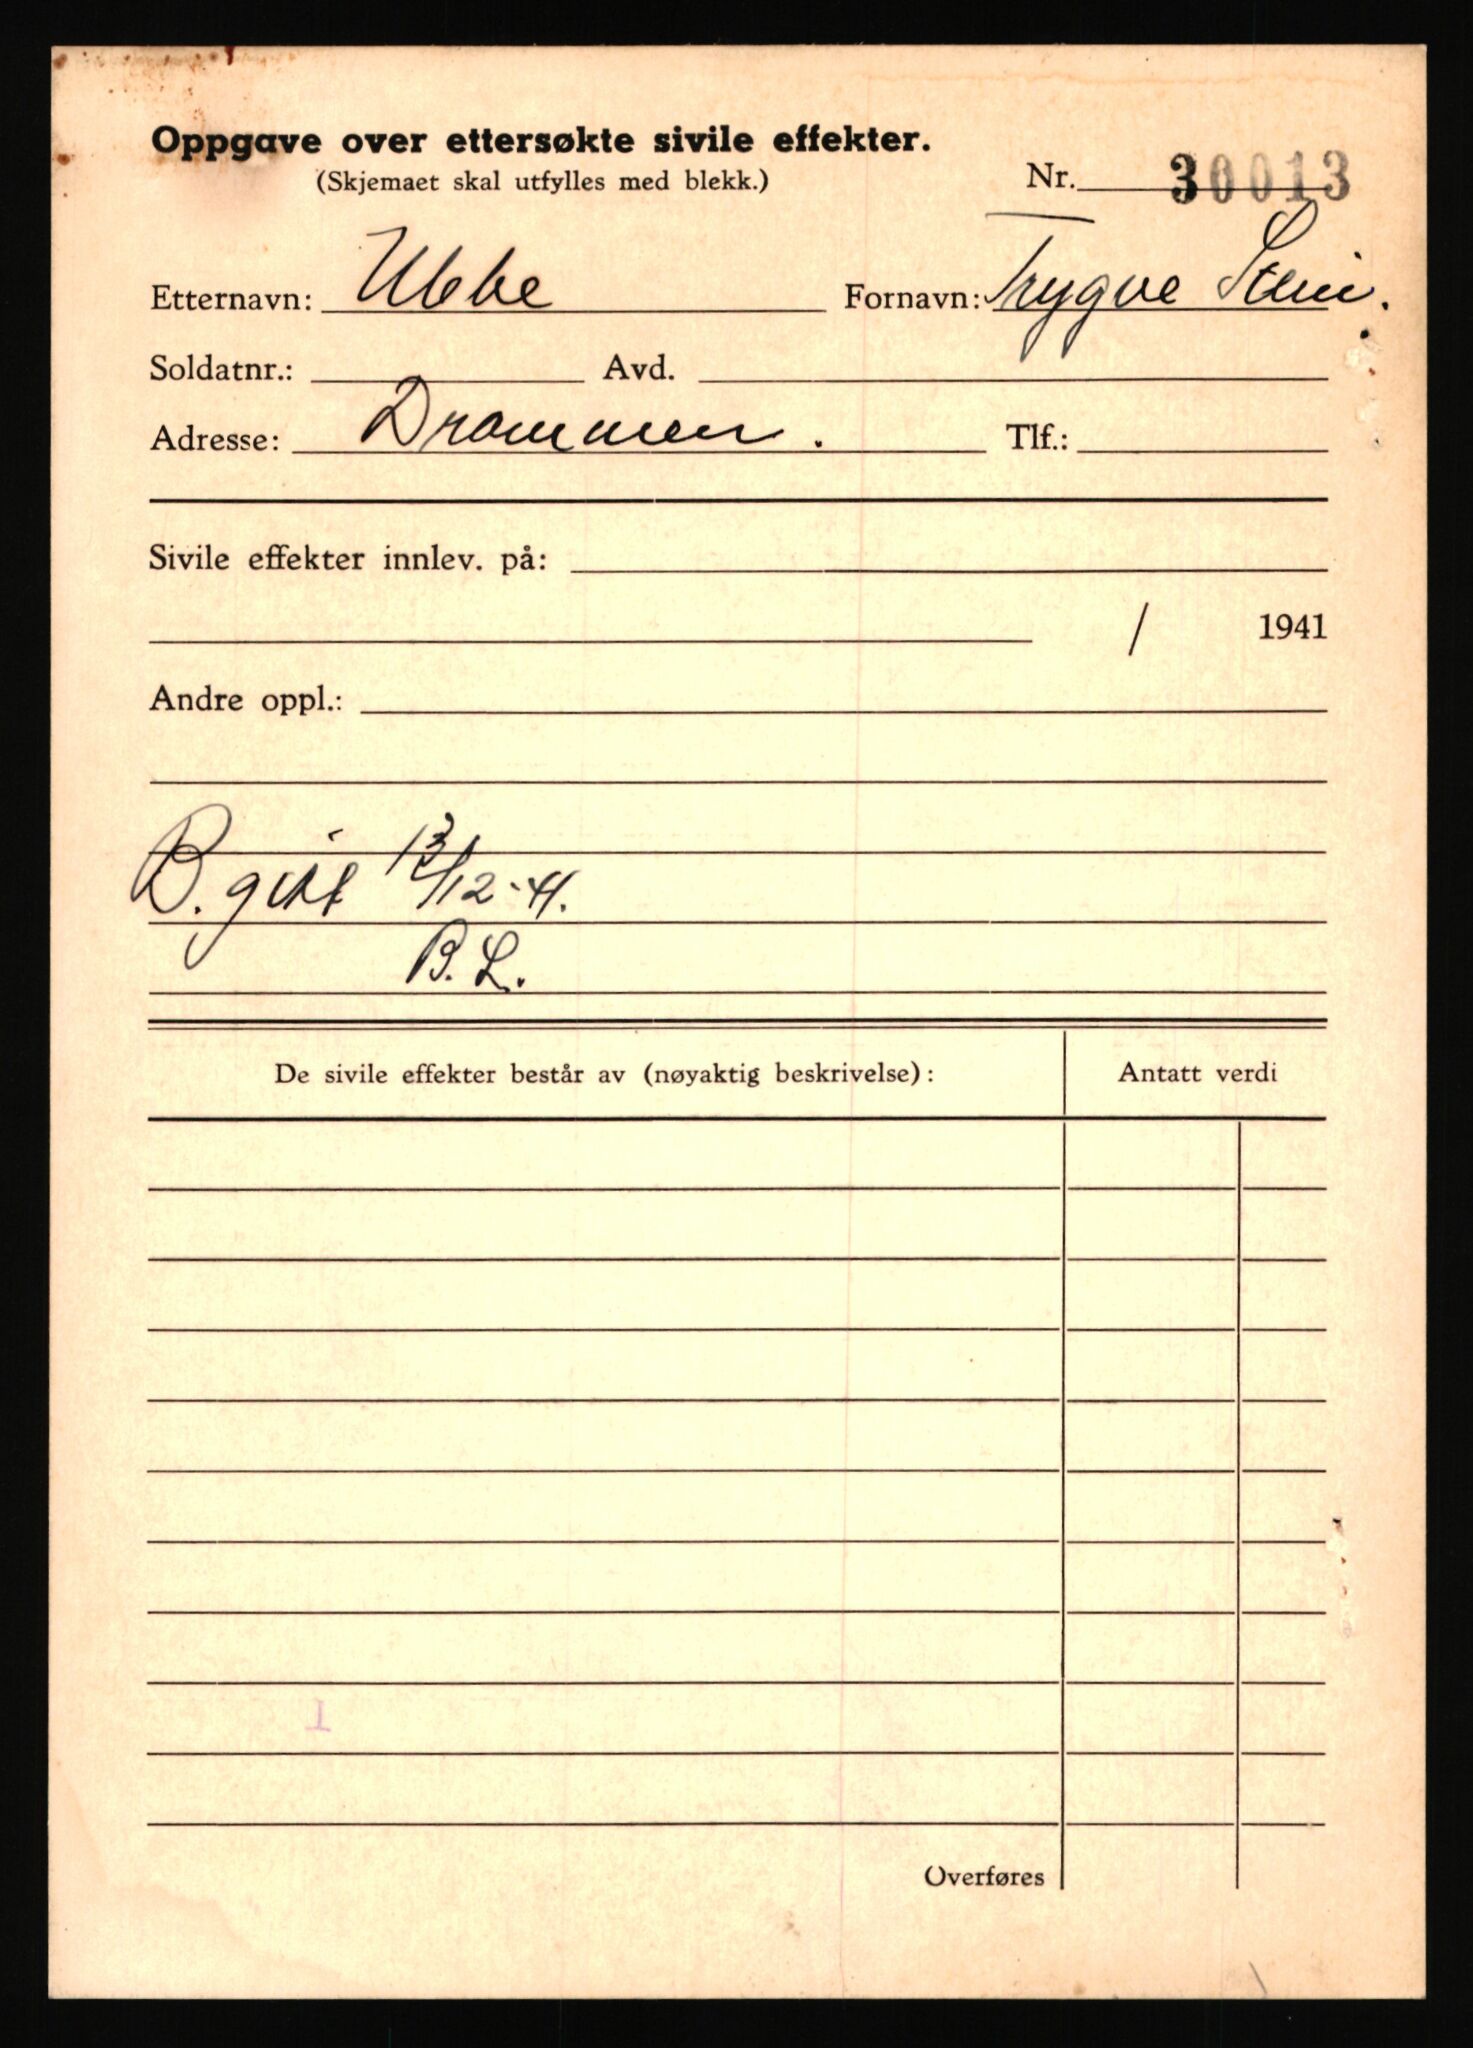 Oppgave over ettersøkte sivile effekter.
(Skjemaet skal utfylles med blekk.) Nr. 30013
Etternavn: Ubbe Fornavn: Trygve Stein.
Soldatnr.: Avd.
Adresse: Drammen. Tlf.:
Sivile effekter innlev. på:
/ 1941
Andre oppl.:
B. gitt 13/12-41.
B. L.
De sivile effekter består av (nøyaktig beskrivelse): Antatt verdi
Overføres